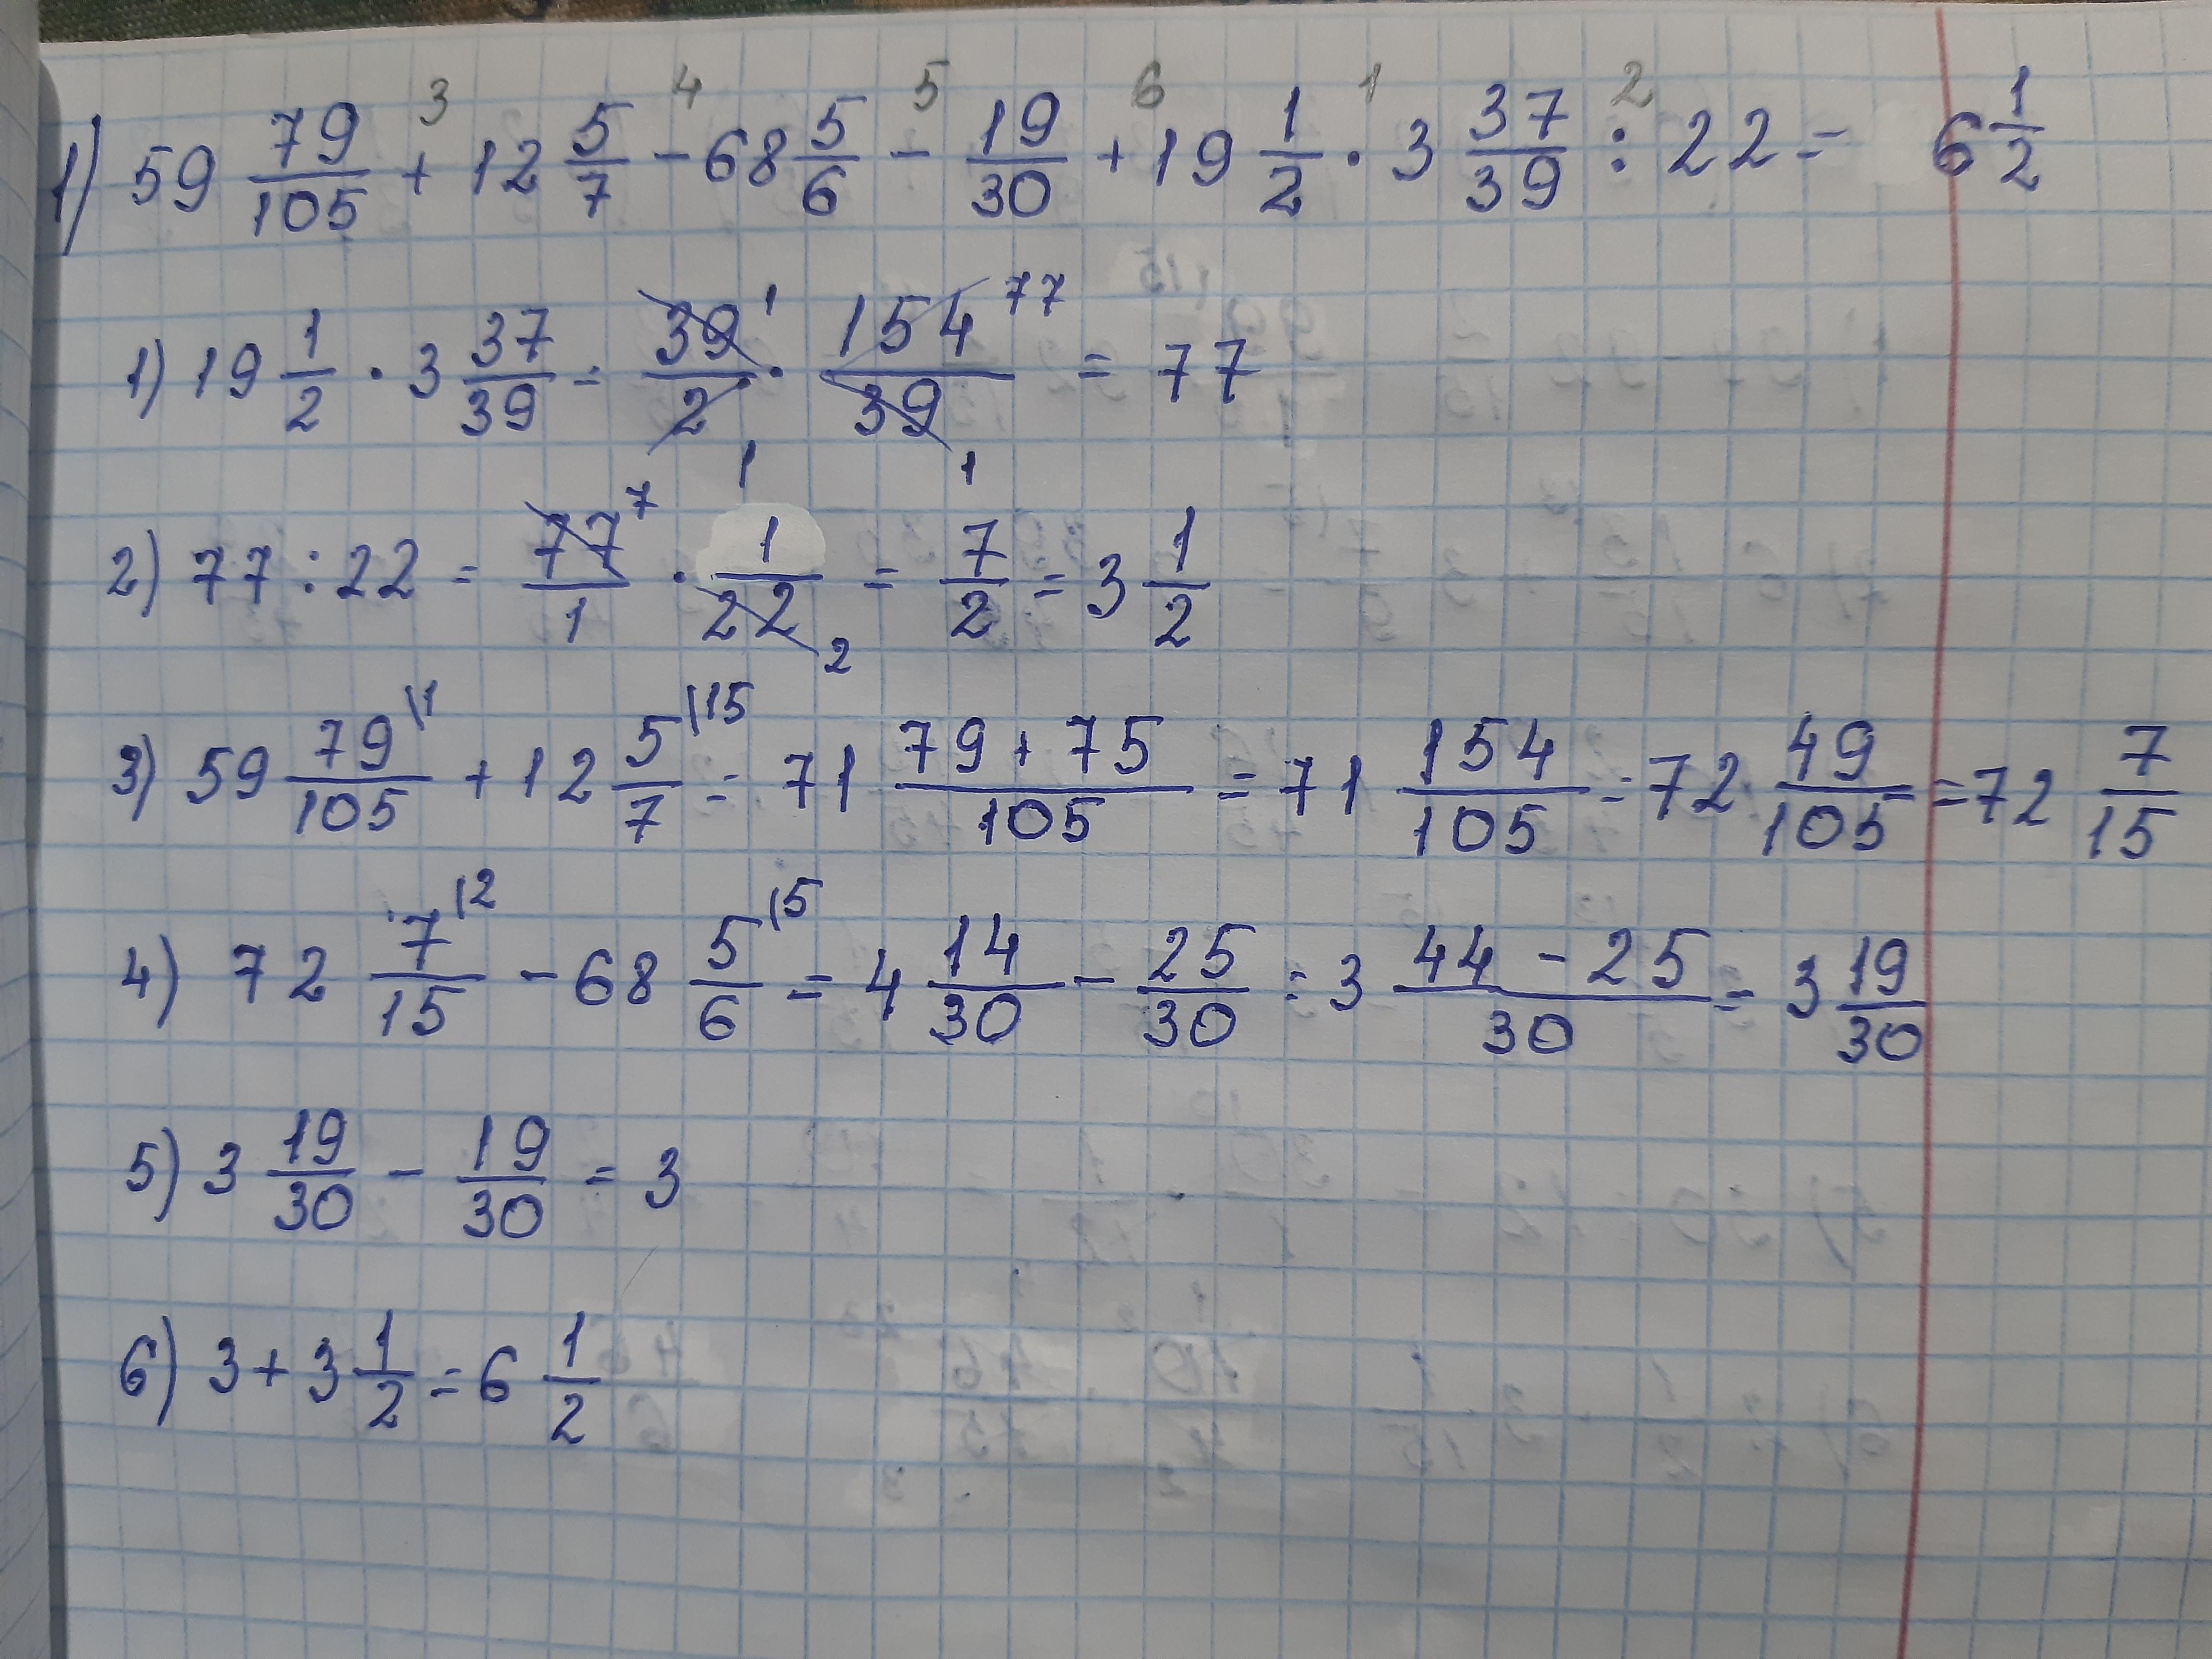 3 4 5 6 1 2
1) 59 79/105 + 12 5/7 - 68 5/6 - 19/30 + 19 1/2 · 3 37/39 : 22 = 6 1/2
1) 19 1/2 · 3 37/39 = 39¹/2₁ · 154⁷⁷/39₁ = 77
2) 77 : 22 = 77⁷/1 · 1/22₂ = 7/2 = 3 1/2
3) 59 79\1/105 + 12 5\15/7 = 71 79+75/105 = 71 154/105 = 72 49/105 = 72 7/15
4) 72 7\2/15 - 68 5\5/6 = 4 14/30 - 25/30 = 3 44-25/30 = 3 19/30
5) 3 19/30 - 19/30 = 3
6) 3 + 3 1/2 = 6 1/2